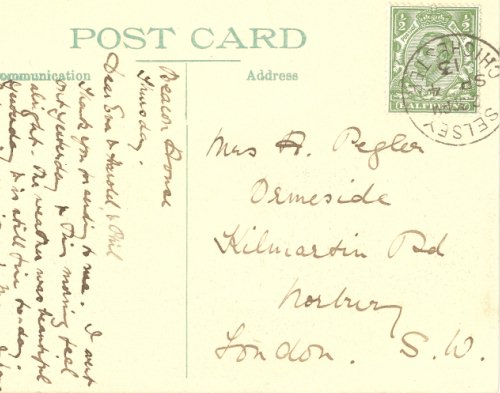 POST CARD
Communication
Address
½
½
HALFPENNY
SELSEY
CHICHESTER
13
SR
Mrs H. Pegler
Ormeside
Kilmartin Rd
Norbury
London. S.W.
Beacon House
Thursday.
Dear Em & Harold & Phil
Thank you for sending to me. I went
out yesterday & this morning feel
alright. The weather was beautiful
yesterday & is still fine to-day.